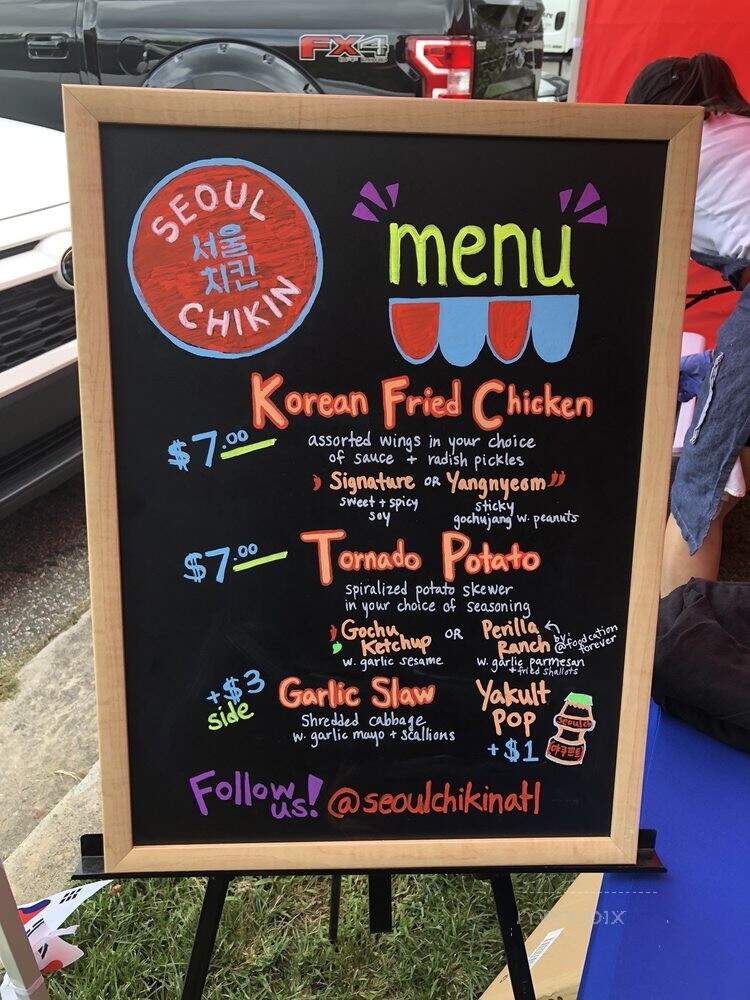 FX4
SEOUL
서울
치킨
CHIKIN
menu
Korean Fried Chicken
$7.00
assorted wings in your choice
of sauce + radish pickles
Signature OR Yangnyeom
sweet + spicy
soy
sticky
gochujang w. peanuts
Tornado Potato
$7.00
spiralized potato skewer
in your choice of seasoning
Gochu
Ketchup
w. garlic sesame
OR
Perilla
Ranch
by:
@foodcation
forever
w. garlic parmesan
+ fried shallots
+$3
side
Garlic Slaw
Shredded cabbage
w. garlic mayo + scallions
Yakult
POP
+$1
seoulch
야쿠르트
Follow
us!
@seoulchikinatl